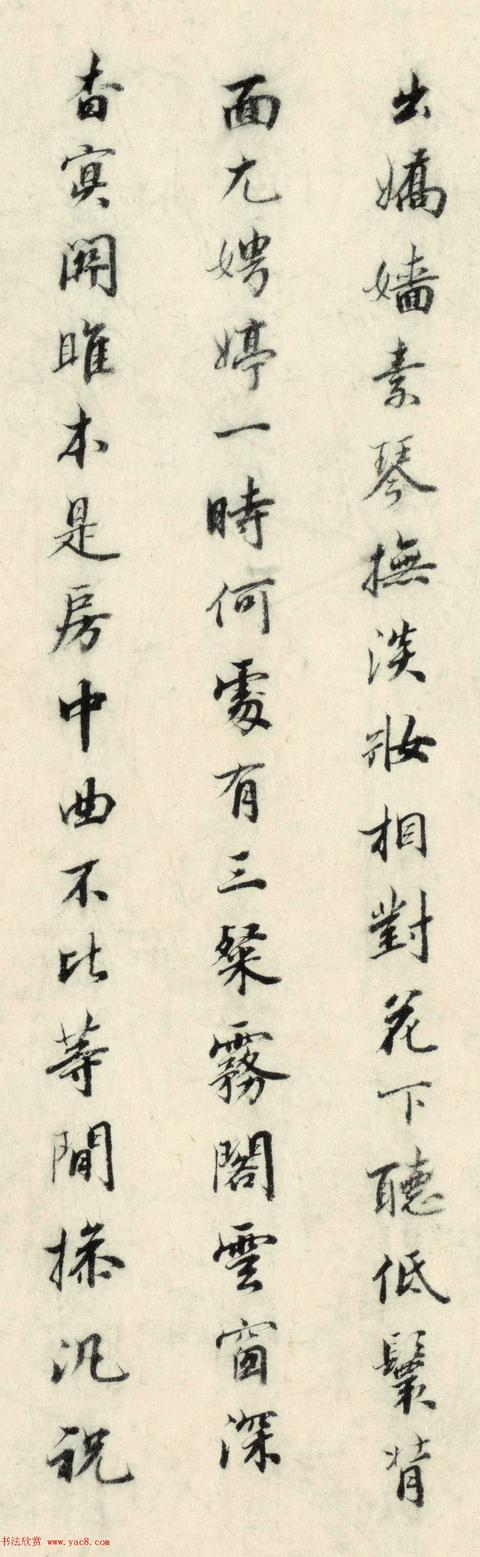 出嬌嬙素琴撫淡妝相對花下聽低鬟背
面尤娉婷一時何處有三粲霧閣雲窗深
杳冥關雎本是房中曲不比等閒操汎祝
书法欣赏 www.yac8.com